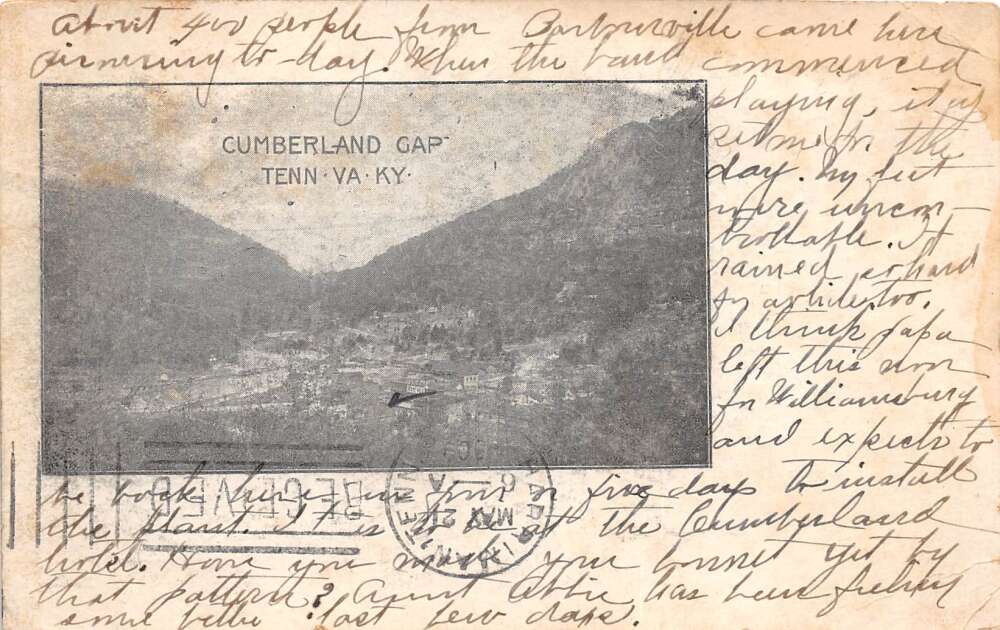 About 400 people from Barbourville came here
picnicing to-day. When the band commenced
playing, it just
set me for the
day. My feet
were uncon-
trollable. It
rained so hard
for awhile, too.
I think papa
left this noon
for Williamsburg
and expects to
be back here in four or five days to install
the plant. It is to be at the Cumberland
hotel. Have you made your bonnet yet by
that pattern? Aunt Abbie has been feeling
some better last few days.
CUMBERLAND GAP
TENN · VA · KY ·
RECEIVED
MAY 2